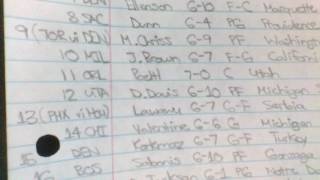 DEN Ellenson 6-10 F-C Marquette
8 SAC Dunn 6-4 PG Providence
9 (TOR via DEN) M. Chriss 6-9 PF Washington
10 MIL J. Brown 6-7 F-G Californi
11 ORL Poeltl 7-0 C Utah
12 UTA D. Davis 6-10 PF Michigan
13 (PHX via Was) Lawawu 6-7 G-F Serbia
14 CHI Valentine 6-6 G Michigan
15 DEN Korkmaz 6-7 G-F Turkey
16 BOS Sabonis 6-10 PF Gonzaga
Jackson 6-1 PG Notre Da